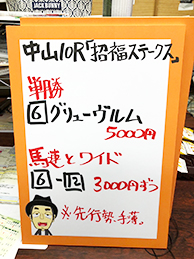 JACK BUNNY
中山10R「招福ステークス」
単勝
6 グリューヴルム
5000円
馬連とワイド
6-12 3000円ずつ
※先行勢、手薄。